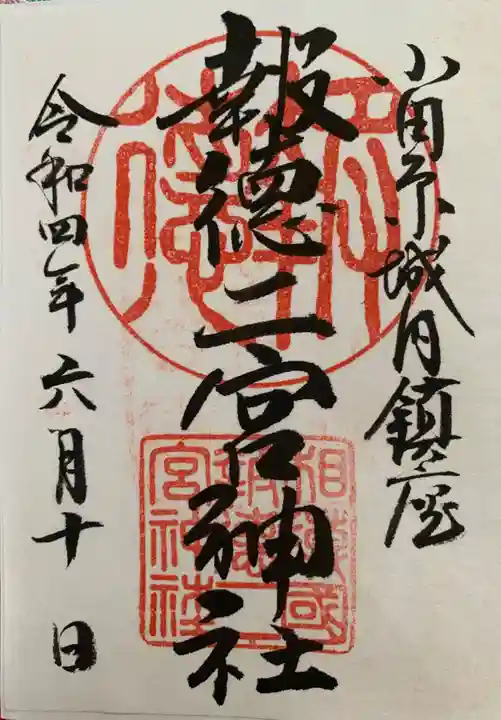 小田原城内鎮座
報徳二宮神社
令和四年六月十日
相模國報徳二宮神社